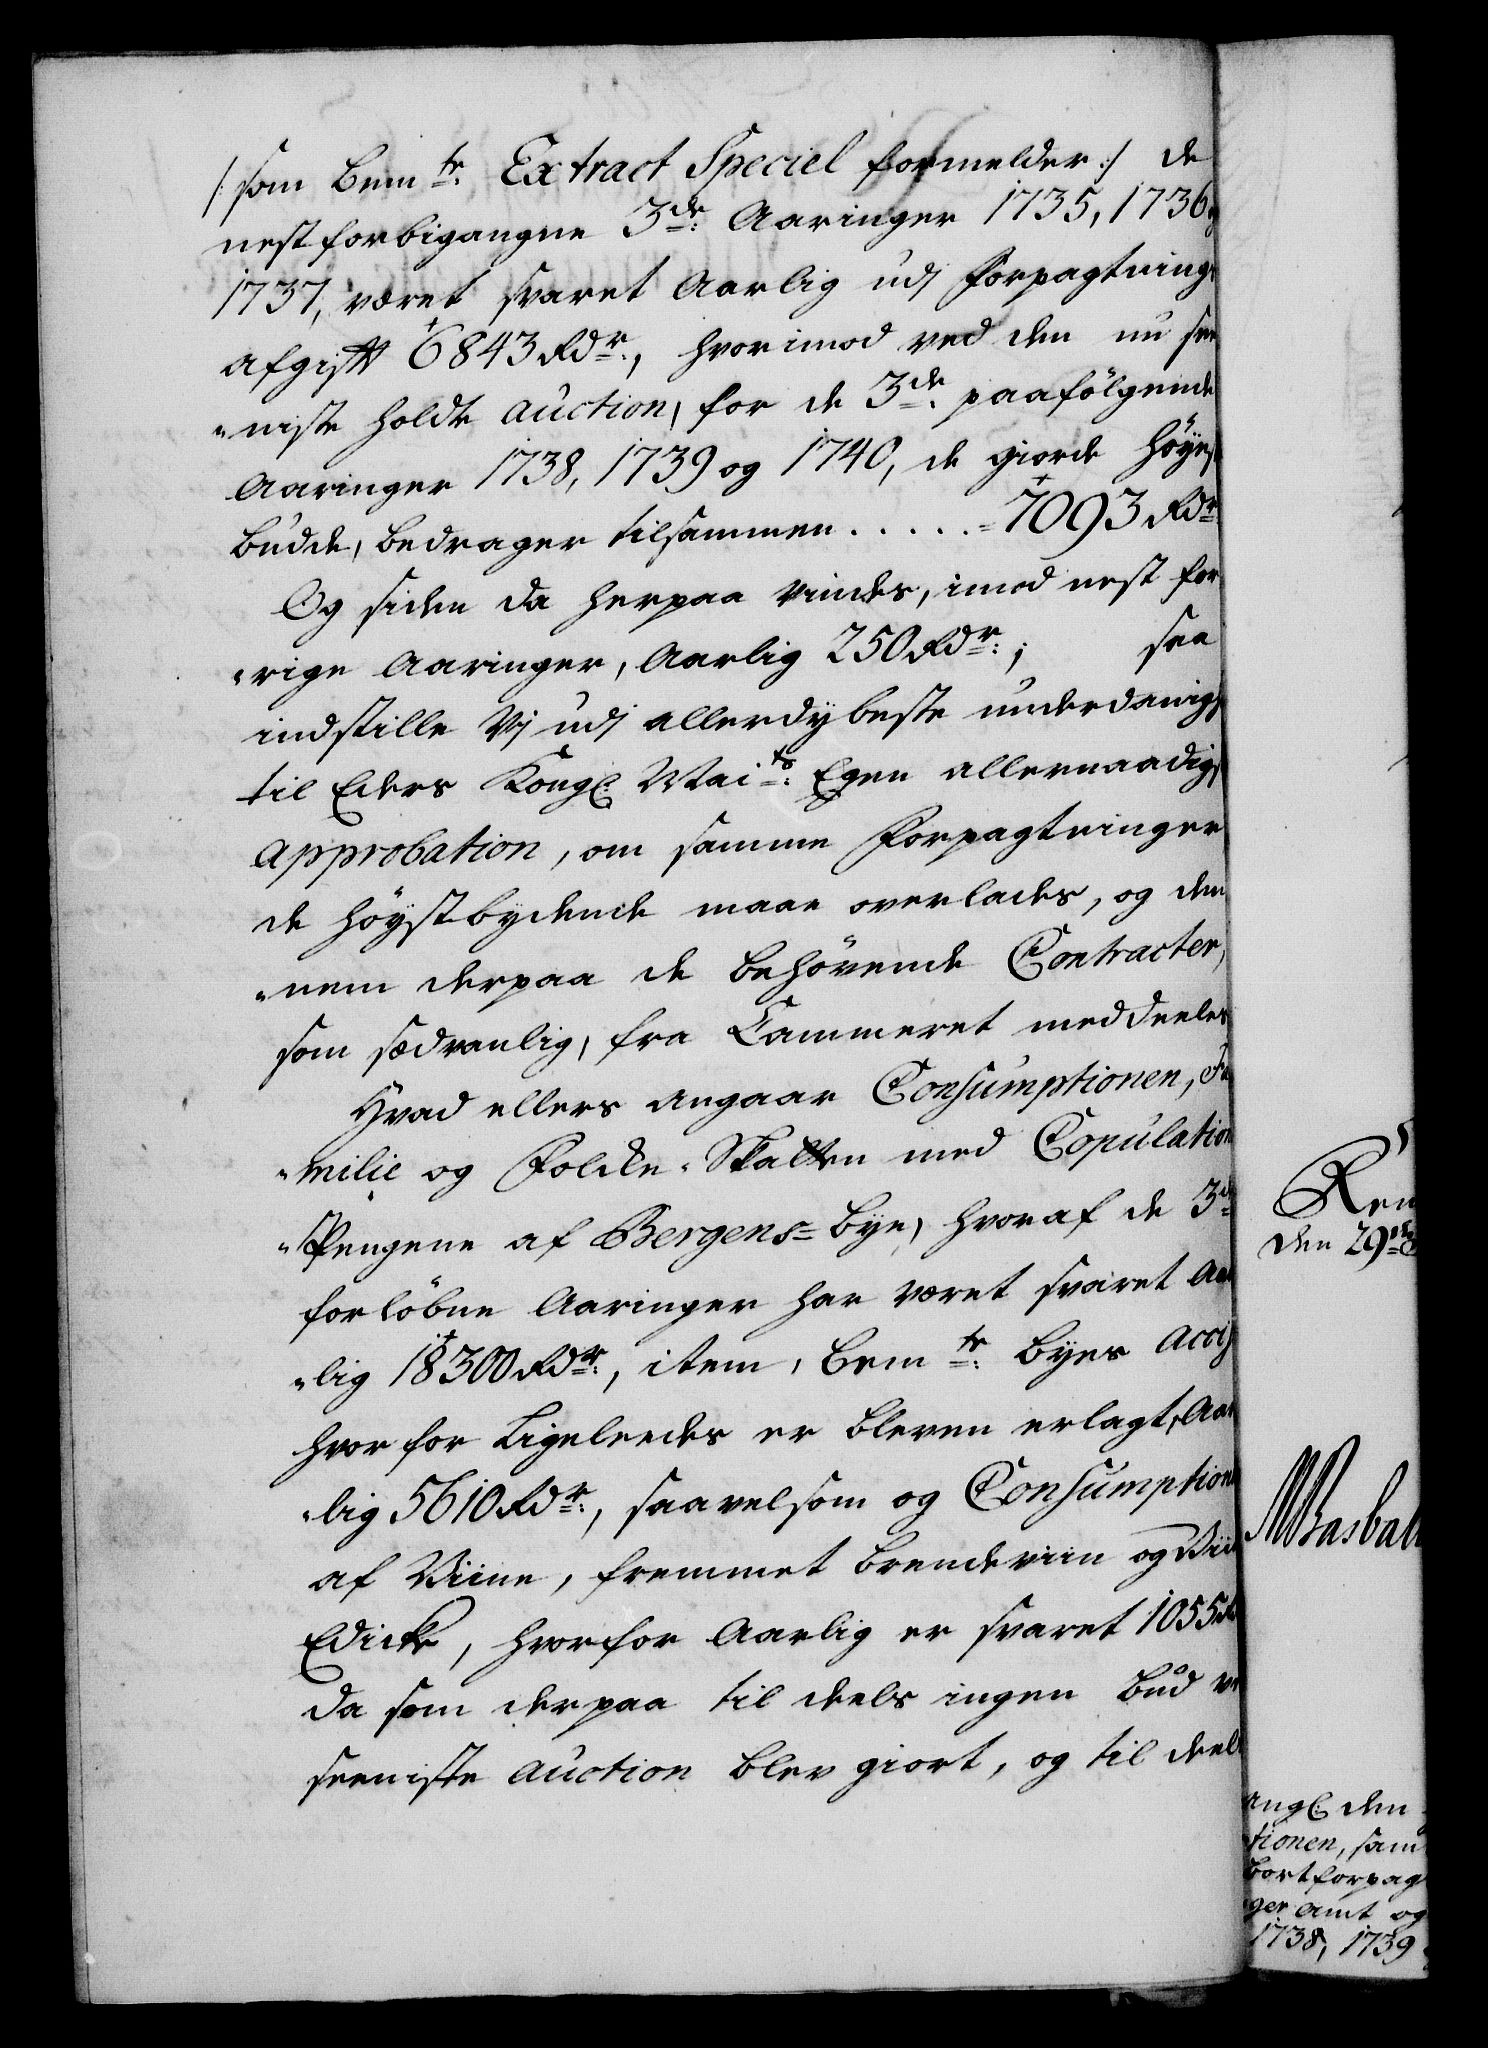 /: som bem.te Extract Speciel formelder :/ de
nestforbigangne 3de Aaringer 1735, 1736
1737, været svaret Aarlig udj Forpagtnings
afgift 6843 Rdr., hvorimod ved den nu see
„niste holdte Auction, for de 3de paafölgende
Aaringer 1738, 1739 og 1740, de giorde Höyes
budde, bedrager tilsammen . . . . . 7093 Rdr.
Og siden da herpaa vindes, imod nest for
„rige Aaringer, Aarlig 250 Rdr.; saa
indstille Vj udj allerdybeste underdanigs
til Eders Kongl. Maits. Egen allernaadigs
Approbation, om samme Forpagtninger
de Höystbydende maae overlades, og den
„nem derpaa de behövende Contracter,
som sædvanlig, fra Cammeret meddeeles
Hvad ellers angaar Consumptionen, Fa
„milie og Folcke-Skatten med Copulation
„Pengene af Bergens-Bye, hvoraf de 3de
forlöbne Aaringer har været svaret Aar
„lig 18300 Rdr., item, bem.te Byes Accis
hvorfor Ligeleedes er bleven erlagt, Aar
„lig 5610 Rdr., saavelsom og Consumptionen
af Viine, fremmet Brendeviin og Viin
Edicke, hvorfor Aarlig er svaret 1055 Rd
da som derpaa til deels ingen Bud ve
seeniste Auction blev giort, og til deels
Ren
den 29de
angl. den
tionen, sam
bortforpag
ger Amt og
1738, 1739